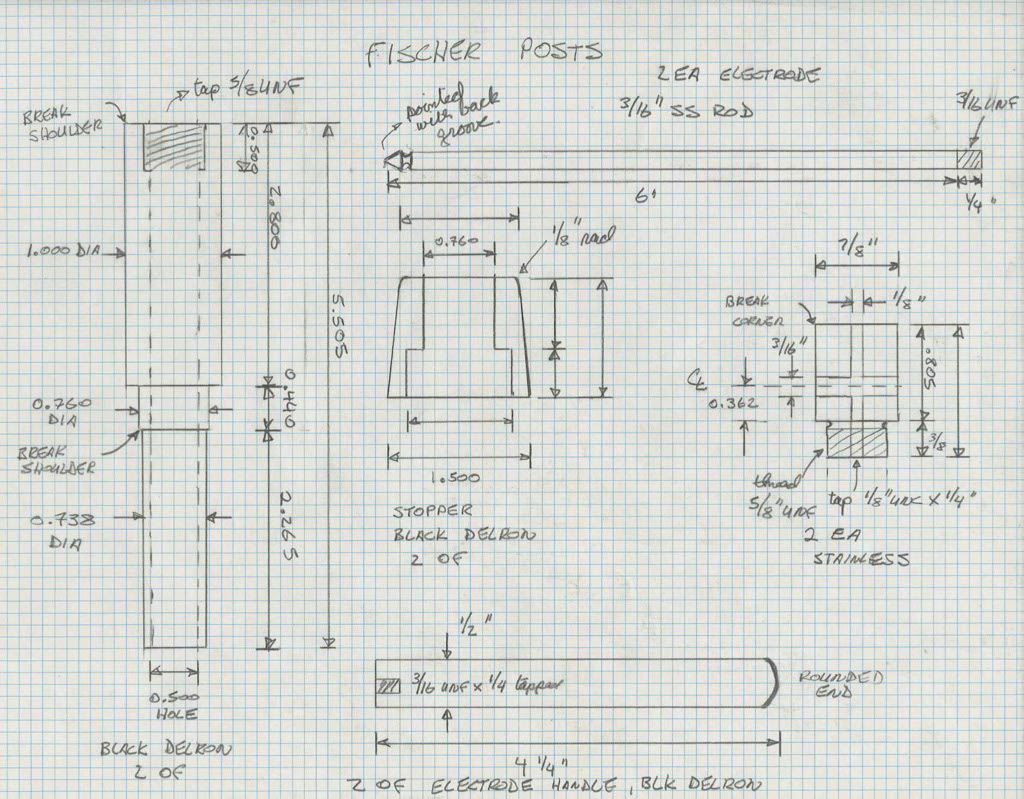 FISCHER POSTS
tap 5/8 UNF
BREAK
SHOULDER
0.500
2.800
1.000 DIA
5.505
0.440
0.760
DIA
BREAK
SHOULDER
0.738
DIA
2.265
0.500
HOLE
BLACK DELRON
2 OF
2 EA ELECTRODE
3/16" SS ROD
pointed
with back
groove.
3/16 UNF
6"
1/4"
0.760
1/8" rad
1.500
STOPPER
BLACK DELRON
2 OF
7/8"
1/8"
BREAK
CORNER
3/16"
CL
0.362
.805
3/8
thread
5/8" UNF
tap 1/8" UNK x 1/4"
2 EA
STAINLESS
1/2"
3/16 UNF x 1/4 tapped
ROUNDED
END
4 1/4"
2 OF ELECTRODE HANDLE, BLK DELRON